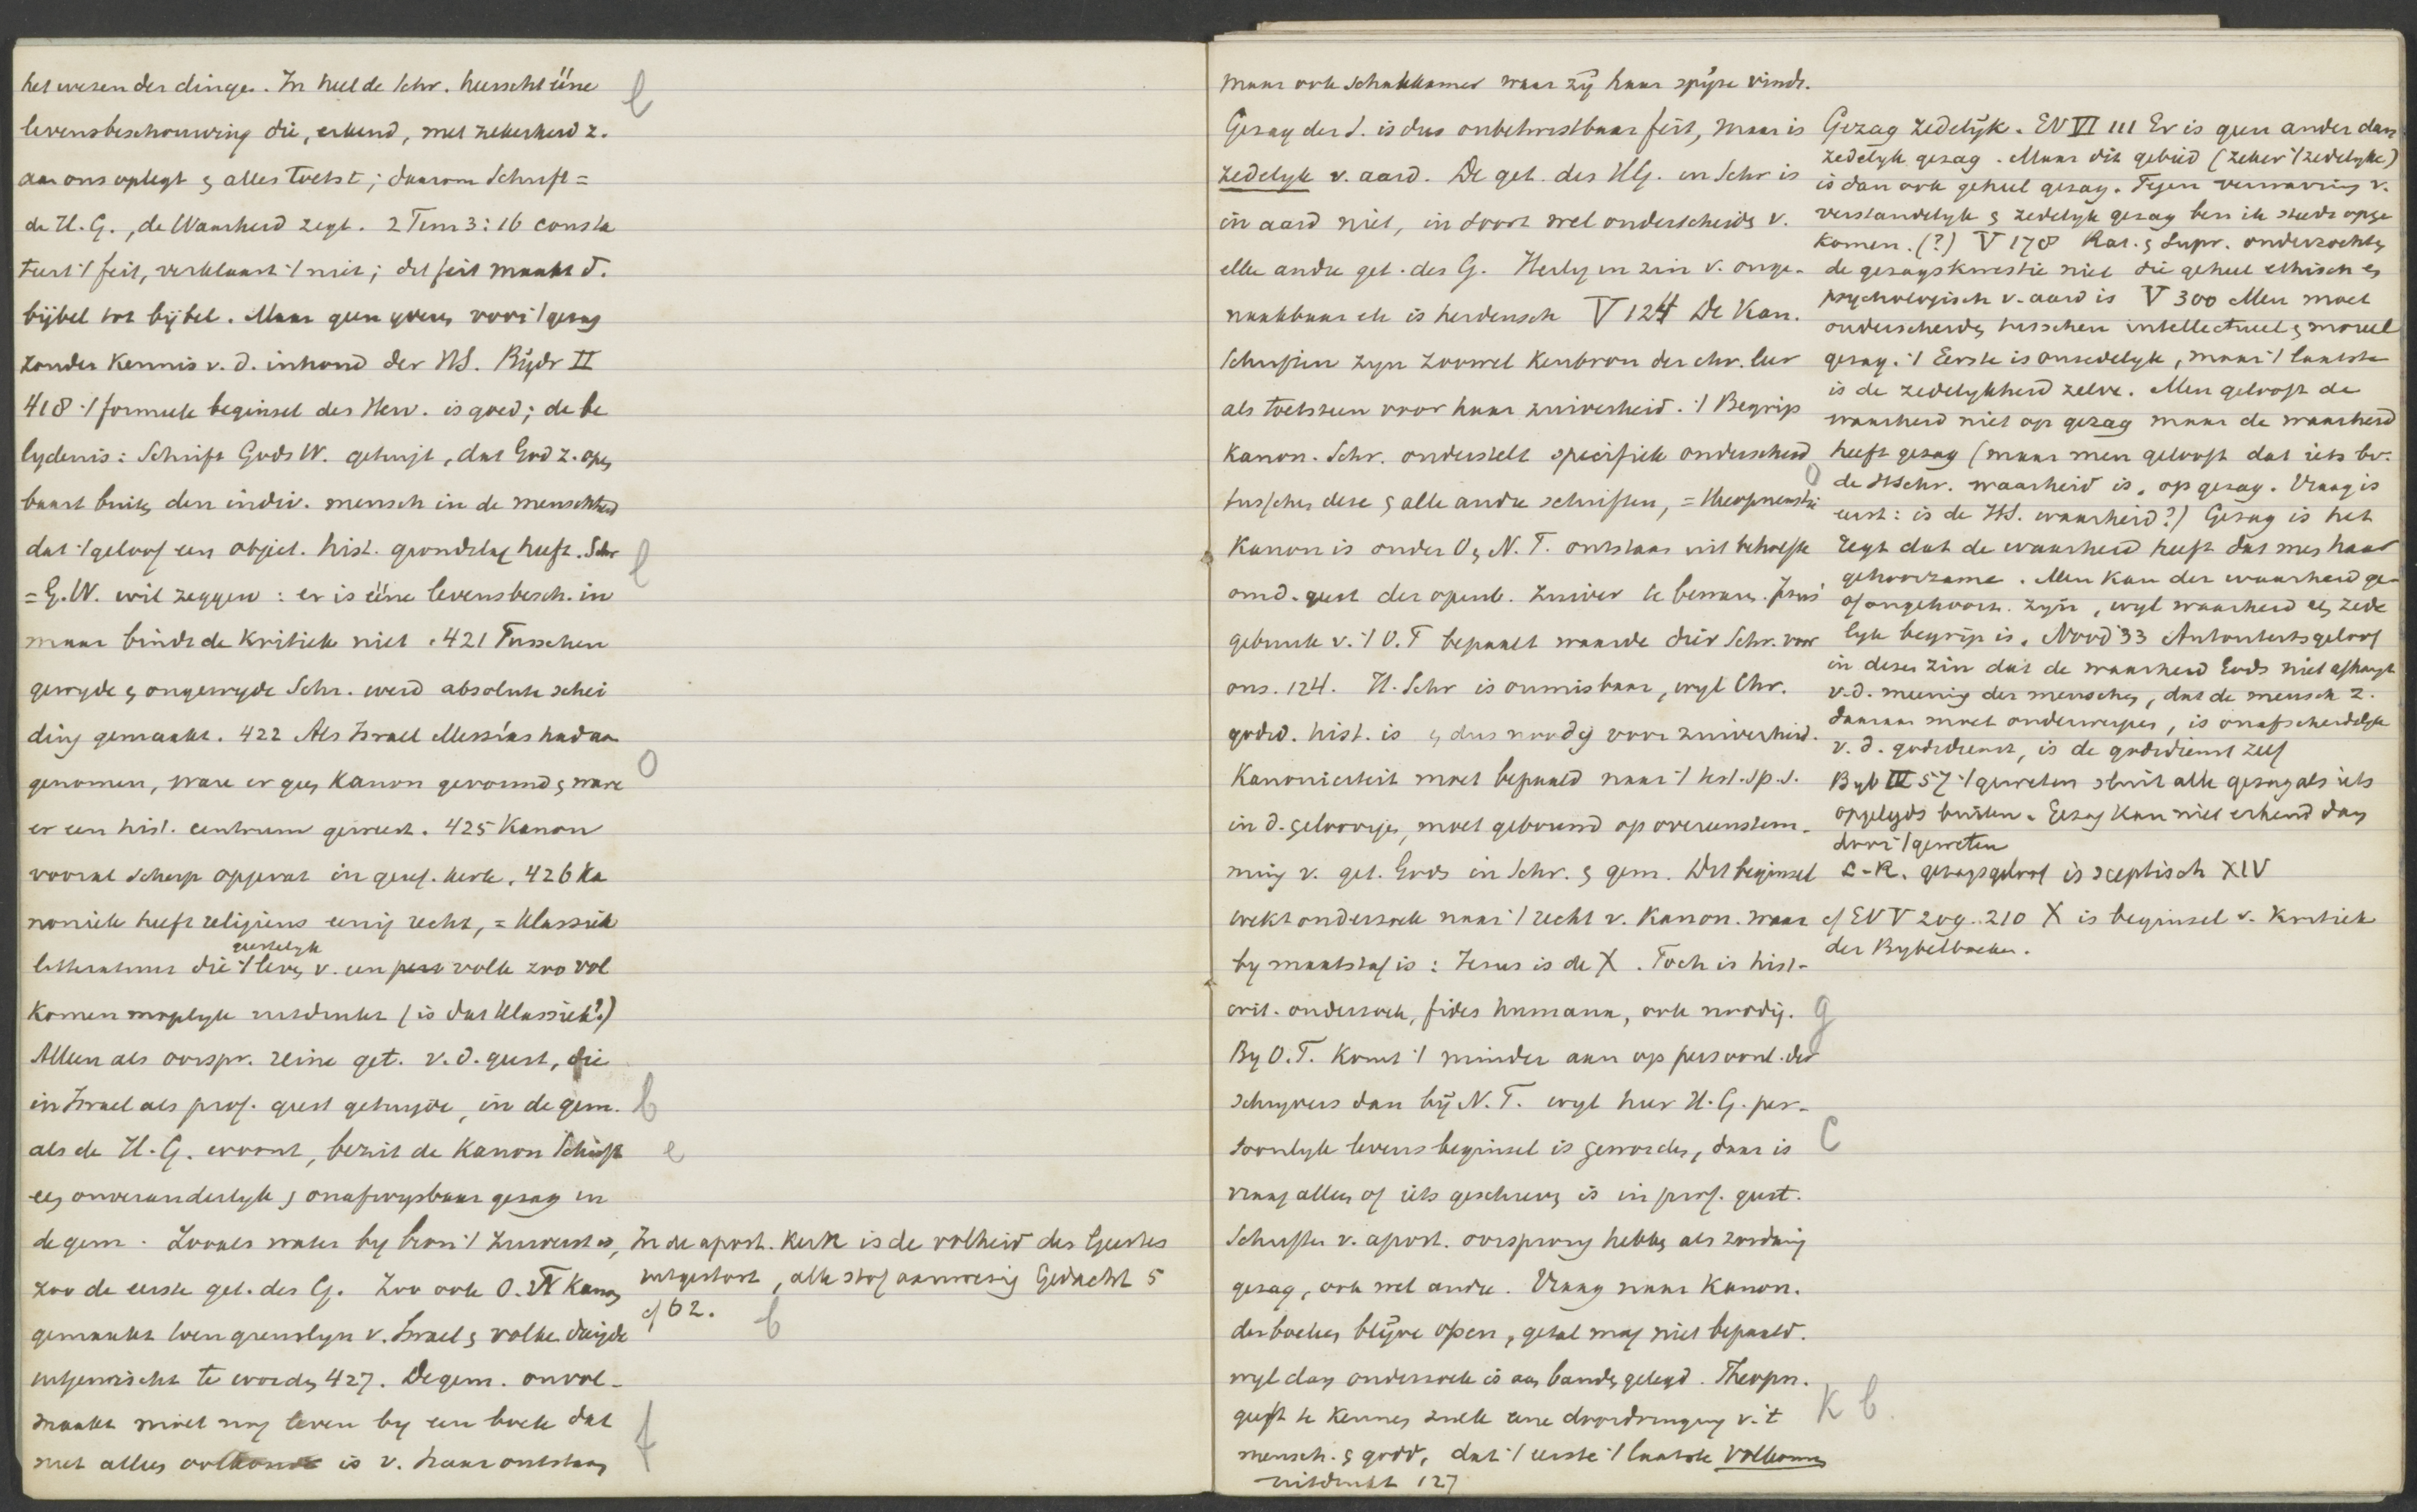 het wezen der dingen. In heel de Schr. heerscht ééne
levensbeschouwing die, erkend, met zekerheid z.
aan ons oplegt & alles toetst; daarom Schrift =
de H.G., de Waarheid zegt. 2 Tim 3:16 consta
teert 't feit, verklaart 't niet; dit feit maakt d.
bijbel tot bijbel. Maar geen grens voor 't gezag
zonder kennis v. d. inhoud der HS. Bijdr II
418 't formeele beginsel der Herv. is goed; de be
lydenis: Schrift Gods W. getuigt, dat God z. open
baart buiten den indiv. mensch in de menschheid
dat 't geloof een object. hist. grondslag heeft. Schr
= G.W. wil zeggen: er is ééne levensbesch. in
maar bindt de kritiek niet. 421 Tusschen
gewyde & ongewyde Schr. werd absolute schei
ding gemaakt. 422 Als Israel Messias had aan
genomen, ware er geen Kanon gevormd & ware
er een hist. centrum geweest. 425 Kanon
vooral scherp opgevat in geref. kerk. 426 Ka
noniek heeft religieus eenig recht, = klassiek
geestelyk
litteratuur die 't leven v. een volk zoo vol
komen mogelyk uitdrukt (is dat klassiek?)
Alleen als oorspr. reine get. v. d. geest, die
in Israel als prof. geest getuigde, in de gem.
als de H.G. woont, bezit de Kanon Schrift
een onveranderlyk & onafwysbaar gezag in
de gem. Zooals water by bron 't zuiverst is,
zoo de eerste get. des G. Zoo ook O.T. Kanon
gemaakt toen grenslyn v. Israel & volken dreigde
uitgewischt te worden 427. De gem. onvol-
maakt moet nog leven by een boek dat
niet alleen oorkonde is v. haar ontstaan
In de apost. Kerk is de volheid des Geestes
uitgestort, alle stof aanwezig Gedacht 5
cf 62.
l
l
o
b
e
b
f
maar ook schatkamer waar zij haar spijze vindt.
Gezag der S. is dus onbetwistbaar feit, maar is
zedelyk v. aard. De get. des HG. in Schr is
in aard niet, in soort wel onderscheiden v.
elke andre get. des G. Heilig in zin v. onge-
naakbaar etc is heidensch V 124 De Kan.
Schriften zyn zoowel kenbron der chr. leer
als toetssteen voor haar zuiverheid. 't Begrip
Kanon. Schr. onderstelt specifiek onderscheid
tusschen deze & alle andre schriften, = theopneustie
Kanon is onder O & N.T. ontstaan uit behoefte
om d. geest der openb. zuiver te bewaren. Jezus'
gebruik v. 't O.T bepaalt waarde dier Schr. voor
ons. 124. H. Schr is onmisbaar, wyl Chr.
godsd. hist. is & dus noodig voor zuiverheid.
Kanoniciteit moet bepaald naar 't test. Sp. S.
in d. geloovigen, moet gebouwd op overeenstem-
ming v. get. Gods in Schr. & gem. Dit beginsel
wekt onderzoek naar 't recht v. Kanon. waar
by maatstaf is: Jezus is de X. Toch is hist-
crit. onderzoek, fides humana, ook noodig.
By O.T. komt 't minder aan op persoonl. der
schryvers dan bij N.T. wyl hier H.G. per-
soonlyk levensbeginsel is geworden, daar is
vraag alleen of iets geschreven is in prof. geest.
Schriften v. apost. oorsprong hebben als zoodanig
gezag, ook wel andre. Vraag naar Kanon.
der boeken blijve open, getal mag niet bepaald.
wyl dan onderzoek is aan banden gelegd. Theopn.
geeft te kennen zulk eene doordringing v. 't
mensch. & godd, dat 't eerste 't laatste volkomen
uitdrukt 127
o
g
c
k b
Gezag zedelijk. EV VI 111 Er is geen ander dan
zedelyk gezag. Maar dit gebied (zeker 't zedelyke)
is dan ook geheel gezag. Tegen verwarring v.
verstandelyk & zedelyk gezag ben ik steeds opge
komen. (?) V 178 Rat. & Supr. onderzochten
de gezagskwestie niet die geheel ethisch &
psychologisch v. aard is V 300 Men moet
onderscheiden tusschen intellectueel & moreel
gezag. 't Eerste is onzedelyk, maar 't laatste
is de zedelykheid zelve. Men gelooft de
waarheid niet op gezag maar de waarheid
heeft gezag (maar men gelooft dat iets bv.
de HSchr. waarheid is, op gezag. Vraag is
eerst: is de HS. waarheid?) Gezag is het
regt dat de waarheid heeft dat men haar
gehoorzame. Men kan der waarheid ge-
of ongehoorz. zijn, wyl waarheid een zede
lyk begrip is. Nood 33 Autoriteitsgeloof
in dezen zin dat de waarheid Gods niet afhangt
v. d. meening der menschen, dat de mensch z.
daaraan moet onderwerpen, is onafscheidelyk
v. d. godsdienst, is de godsdienst zelf
Byb III 57 't geweten sluit alle gezag als iets
opgelegds buiten. Gezag kan niet erkend dan
door 't geweten
L-R. gezagsgeloof is sceptisch XIV
cf EV V 209. 210 X is beginsel v. Kritiek
der Bybelboeken.